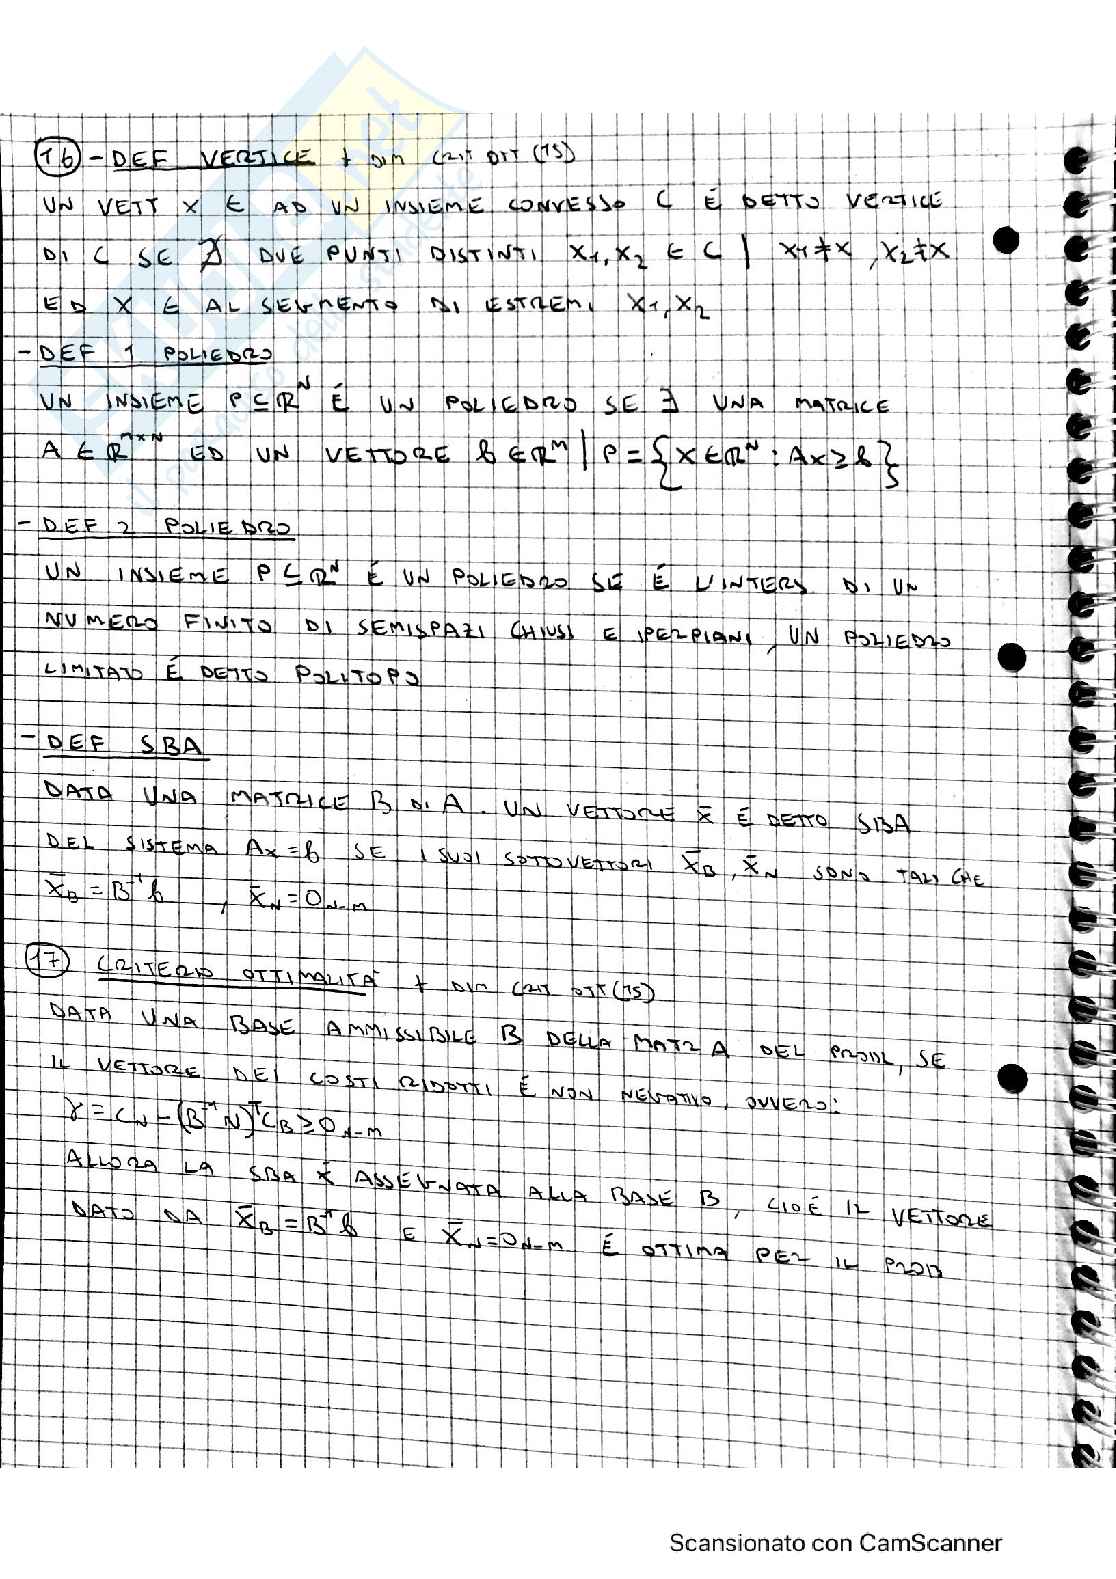 16 - DEF VERTICE + DIM CRIT OTT (15)
UN VETT X ∈ AD UN INSIEME CONVESSO C É DETTO VERTICE
DI C SE ∄ DUE PUNTI DISTINTI X₁, X₂ ∈ C | X₁≠X, X₂≠X
ED X ∈ AL SEGMENTO DI ESTREMI X₁, X₂
- DEF 1 POLIEDRO
UN INSIEME P⊆ℝᴺ É UN POLIEDRO SE ∃ UNA MATRICE
A ∈ ℝᵐˣᴺ ED UN VETTORE b∈ℝᵐ | P = {X∈ℝᴺ : AX ≥ b}
- DEF 2 POLIEDRO
UN INSIEME P⊆ℝᴺ É UN POLIEDRO SE É L'INTERS DI UN
NUMERO FINITO DI SEMISPAZI CHIUSI E IPERPIANI, UN POLIEDRO
LIMITATO É DETTO POLITOPO
- DEF SBA
DATA UNA MATRICE B DI A. UN VETTORE X̄ É DETTO SBA
DEL SISTEMA AX=b SE I SUOI SOTTOVETTORI X̄_B, X̄_N SONO TALI CHE
X̄_B = B⁻¹b , X̄_N = 0_N-m
17 CRITERIO OTTIMALITÀ + DIM CRIT OTT (15)
DATA UNA BASE AMMISSIBILE B DELLA MATR A DEL PROBL, SE
IL VETTORE DEI COSTI RIDOTTI É NON NEGATIVO, OVVERO:
γ = C_N - (B⁻¹N)ᵀC_B ≥ 0_N-m
ALLORA LA SBA X̄ ASSEGNATA ALLA BASE B, CIOÉ IL VETTORE
DATO DA X̄_B = B⁻¹b E X̄_N = 0_N-m É OTTIMA PER IL PROB
Scansionato con CamScanner